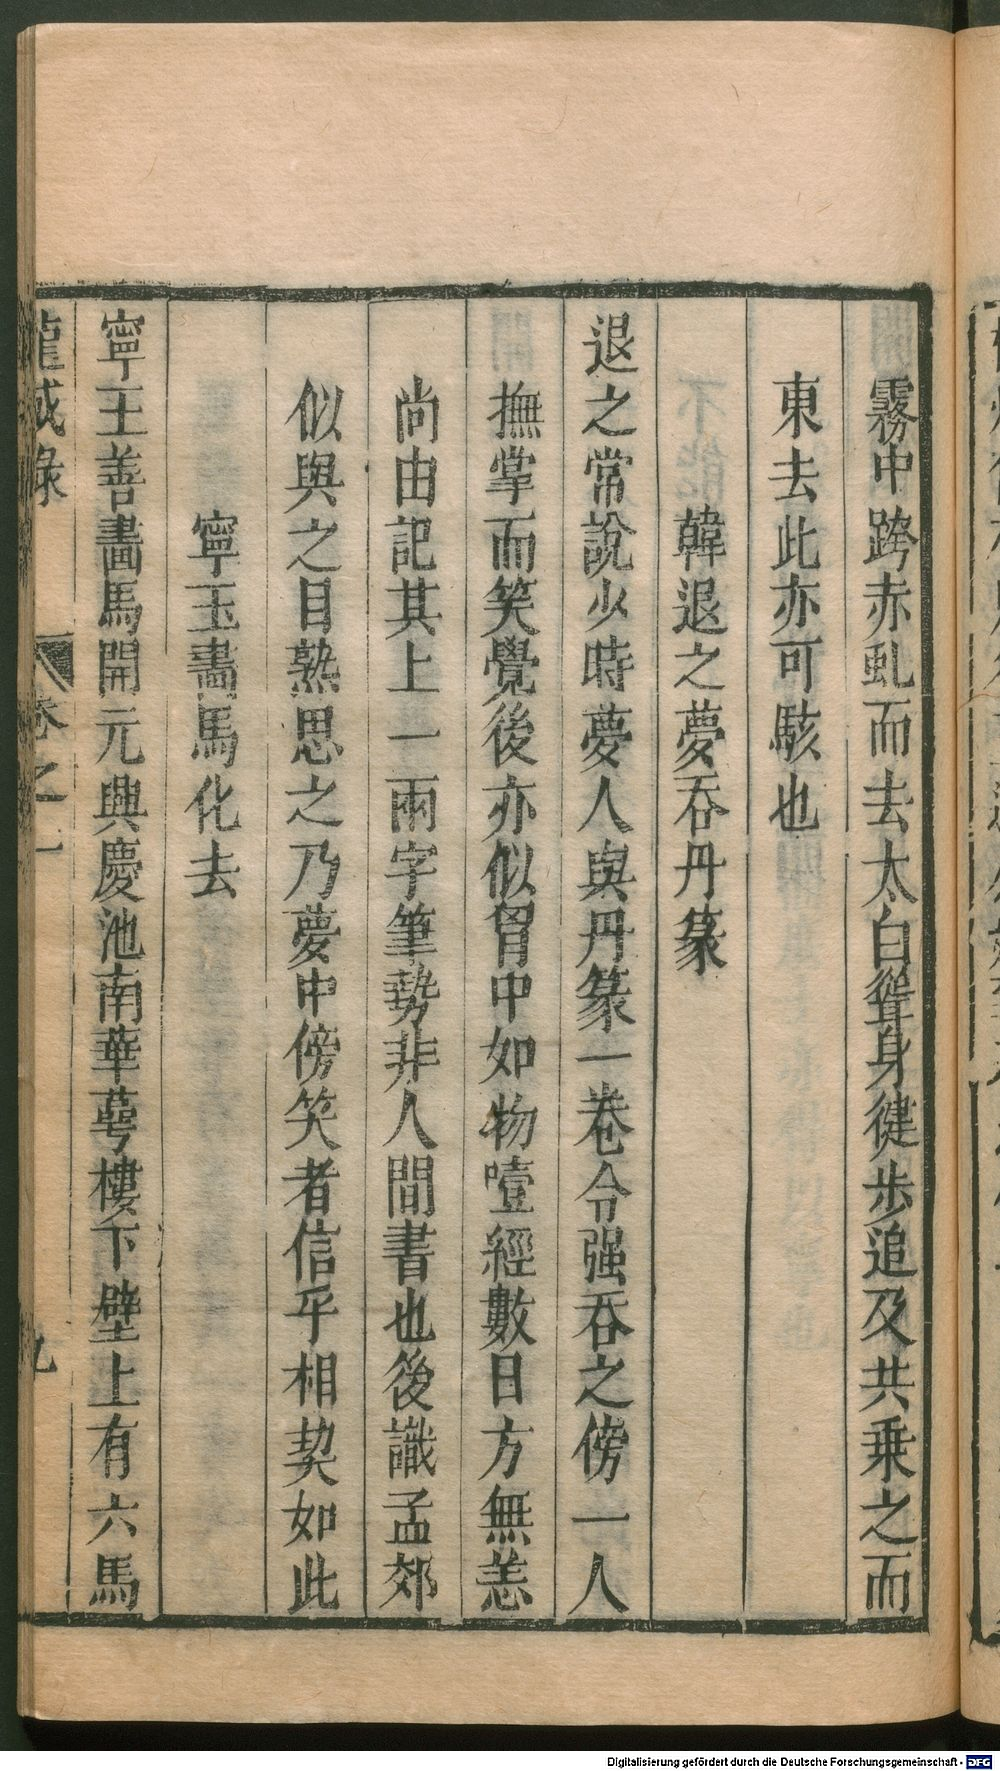 霧中跨赤虬而去太白聳身徤步追及共乗之而
東去此亦可駭也
韓退之夢吞丹篆
退之常說少時夢人與丹篆一卷令强吞之傍一人
撫掌而笑覺後亦似胷中如物噎經數日方無恙
尚由記其上一兩字筆勢非人間書也後識孟郊
似與之目熟思之乃夢中傍笑者信乎相契如此
寧王畵馬化去
寧王善畵馬開元興慶池南華蕚樓下壁上有六馬
龍城錄 卷之上 九
Digitalisierung gefördert durch die Deutsche Forschungsgemeinschaft - DFG